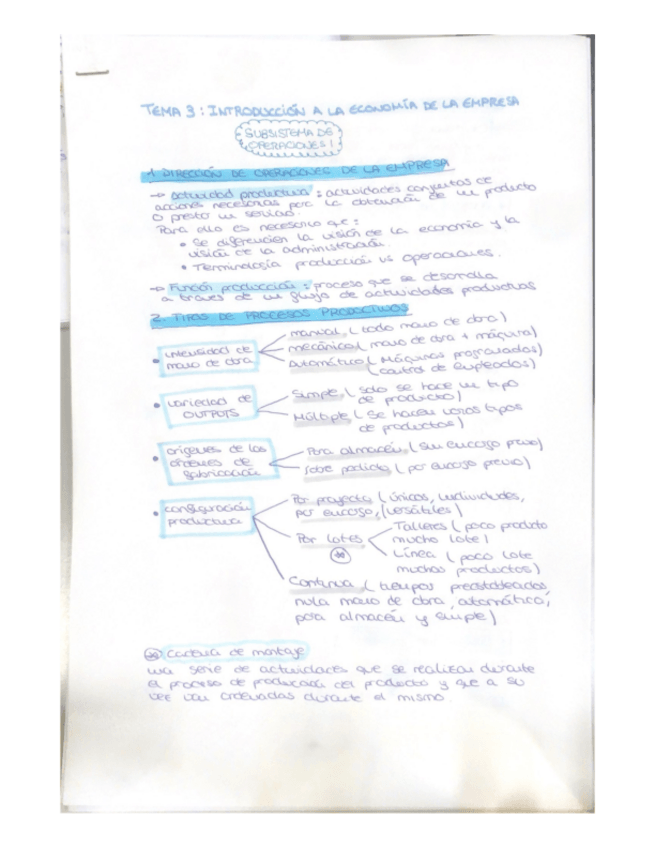 TEMA 3: INTRODUCCIÓN A LA ECONOMÍA DE LA EMPRESA
SUBSISTEMA DE
OPERACIONES I
1. DIRECCIÓN DE OPERACIONES DE LA EMPRESA
→ actividad productiva: actividades conjuntas de
acciones necesarias para la obtención de un producto
o prestar un servicio.
Para ello es necesario que:
• Se diferencien la visión de la economía y la
visión de la administración.
• Terminología producción vs operaciones.
→ Función producción: proceso que se desarrolla
a través de un flujo de actividades productivas
2. TIPOS DE PROCESOS PRODUCTIVOS
• intensidad de
mano de obra
manual (todo mano de obra)
mecánico (mano de obra + máquina)
Automático (Máquinas programadas)
(control de empleados)
• variedad de
OUTPUTS
Simple (solo se hace un tipo
de producto)
Múltiple (Se hacen varios tipos
de productos)
• orígenes de las
órdenes de
fabricación
Para almacén (sin encargo previo)
Sobre pedido (por encargo previo)
• configuración
productiva
Por proyecto (únicos, individuales,
por encargo, (versátiles)
Por lotes
Talleres (poco producto
mucho lote)
Línea (poco lote
muchos productos)
Continua (tiempos preestablecidos,
nula mano de obra, automático,
para almacén y simple)
Cadena de montaje
una serie de actividades que se realizan durante
el proceso de producción del producto y que a su
vez van ordenadas durante el mismo.